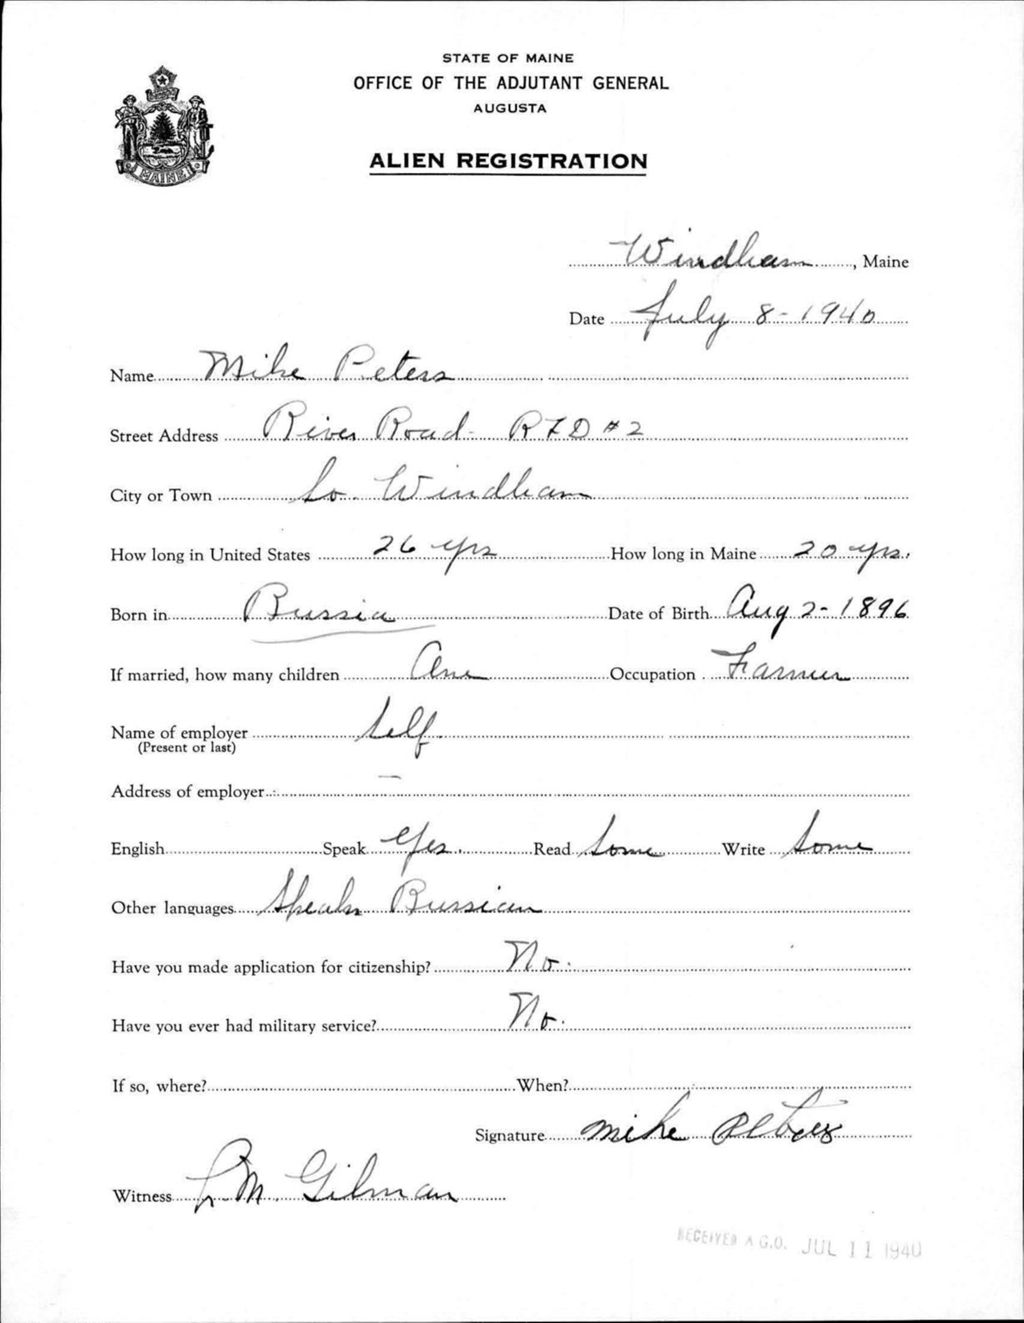 STATE OF MAINE
OFFICE OF THE ADJUTANT GENERAL
AUGUSTA
ALIEN REGISTRATION
MAINE
Windham, Maine
Date July 8-1940
Name Mike Peters
Street Address River Road- RFD #2
City or Town So. Windham
How long in United States 26 yrs How long in Maine 20 yrs.
Born in Russia Date of Birth Aug 2-1896
If married, how many children One Occupation Farmer
Name of employer Self.
(Present or last)
Address of employer —
English Speak Yes. Read Some Write Some
Other languages Speaks Russian
Have you made application for citizenship? No.
Have you ever had military service? No.
If so, where? When?
Signature mike Peters
Witness L. M. Gilman
RECEIVED A.G.O. JUL 11 1940